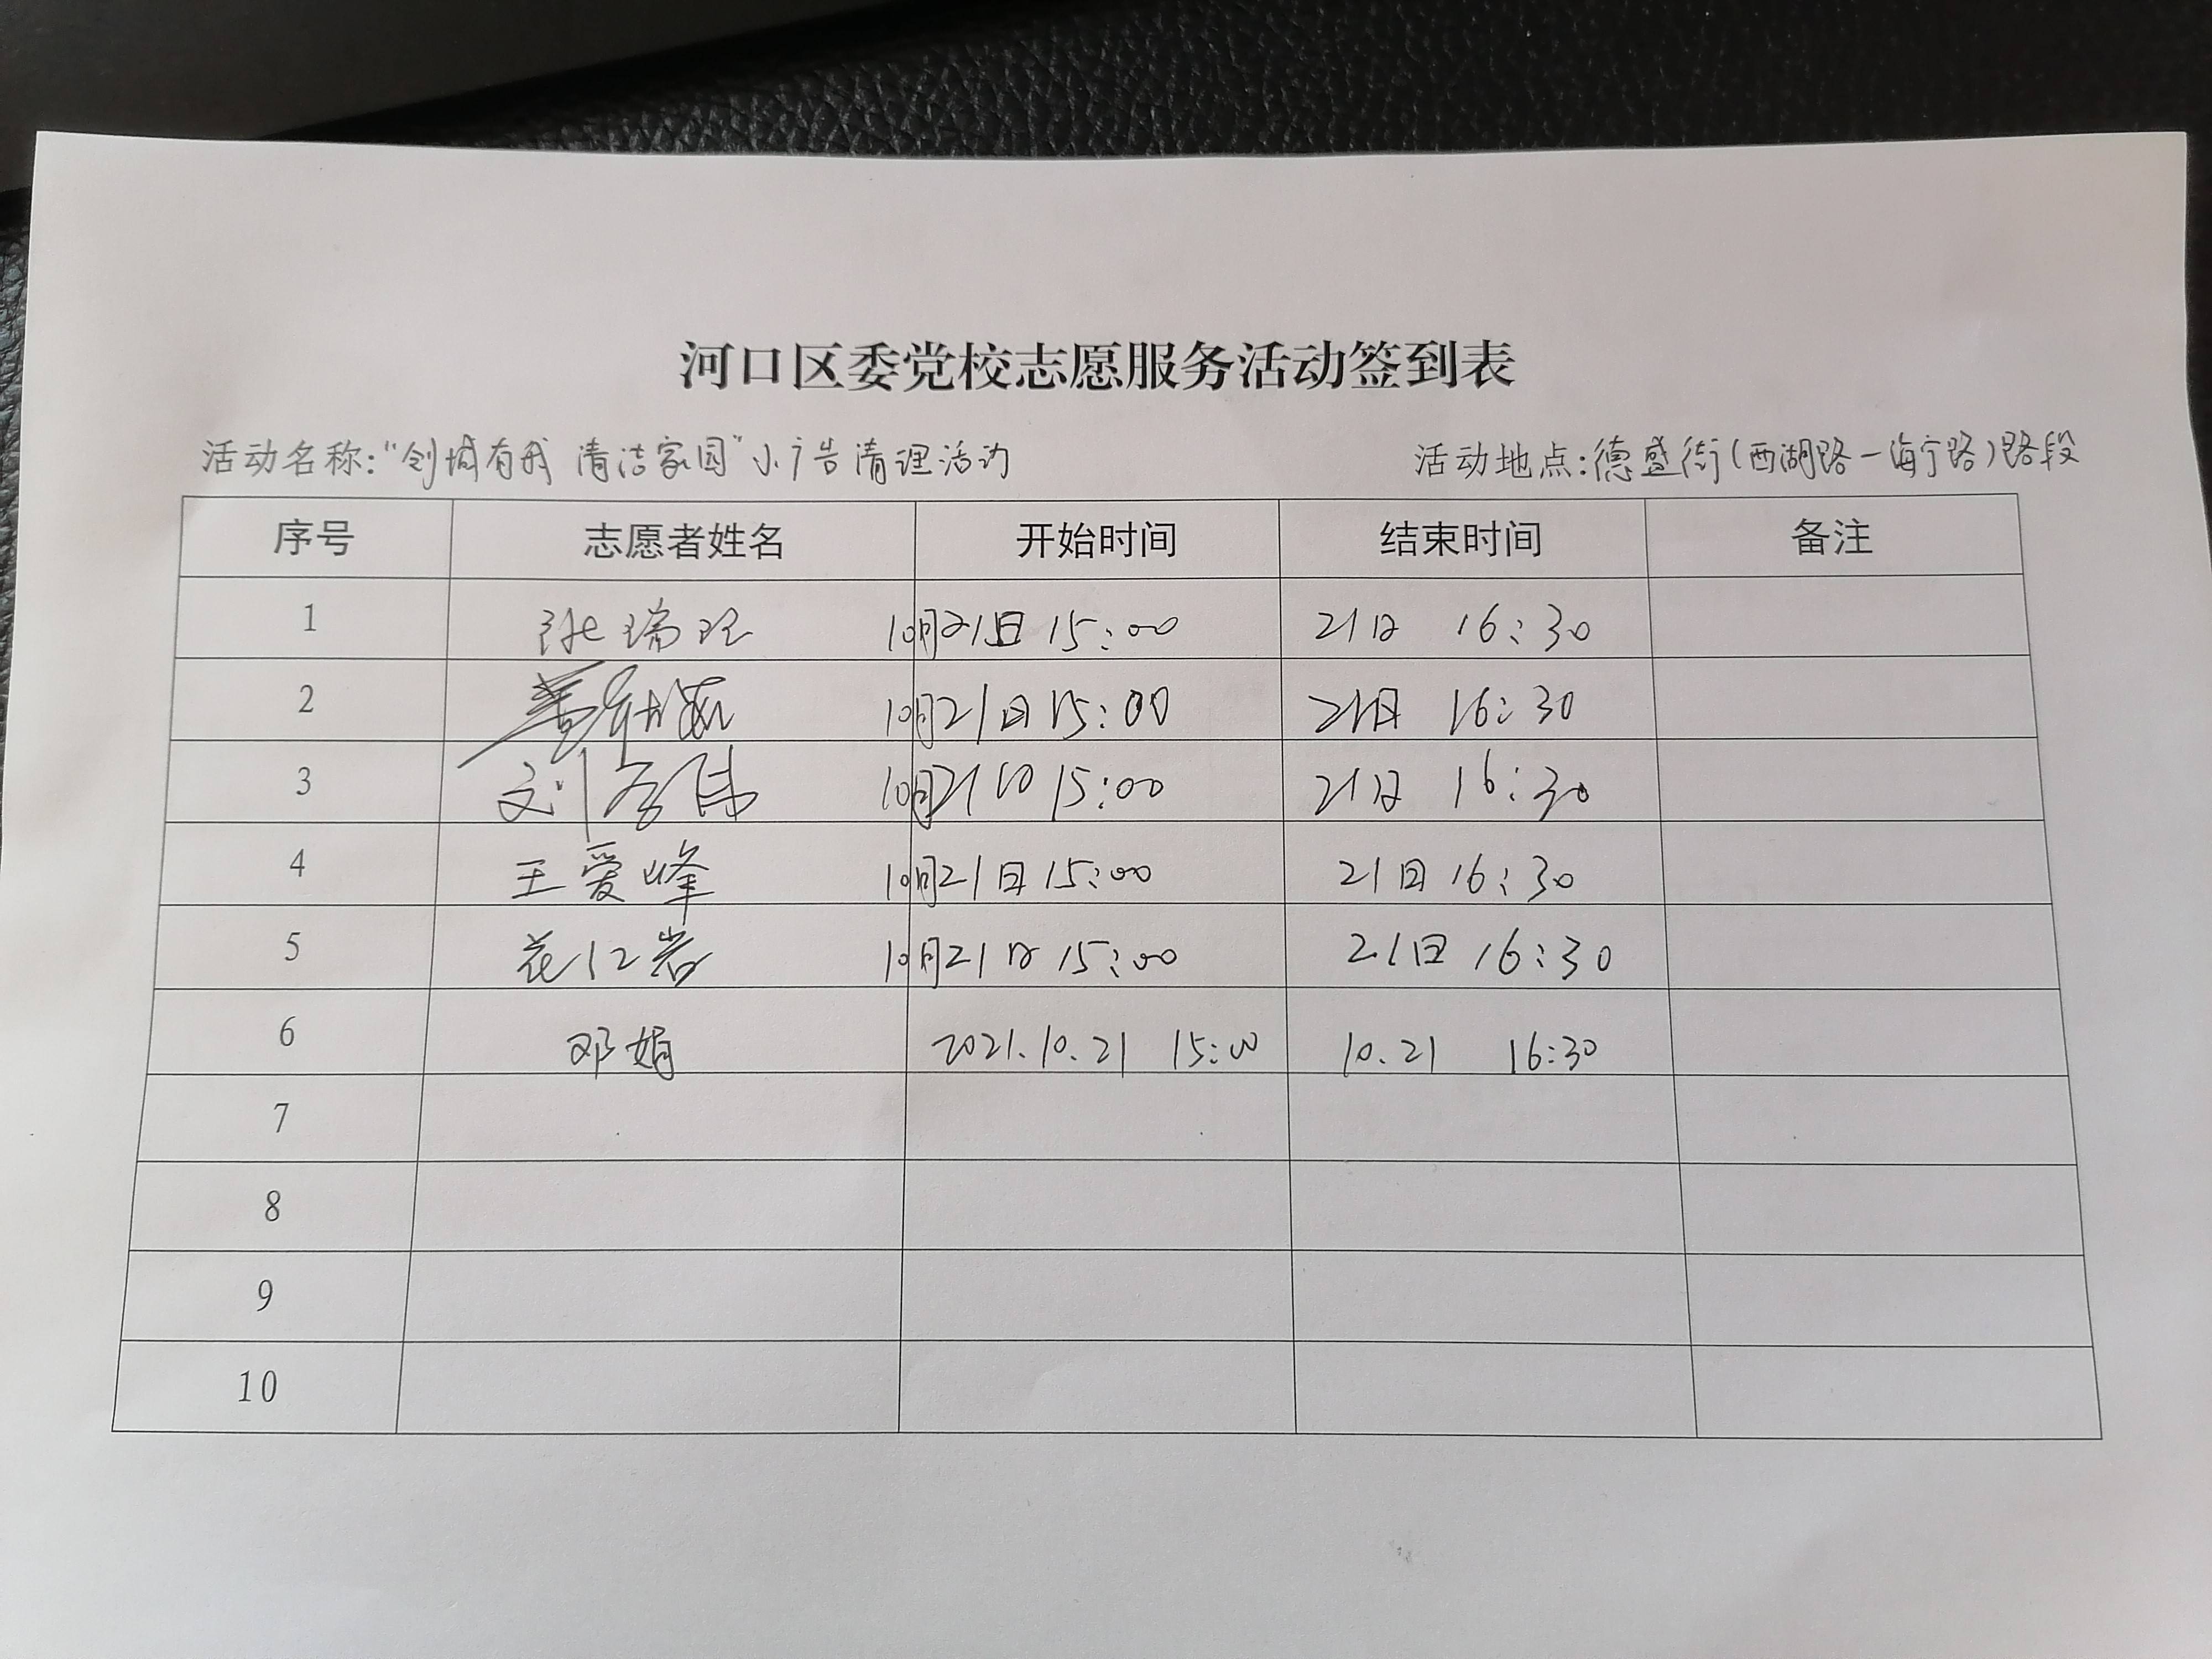 河口区委党校志愿服务活动签到表
活动名称:“创城有我 清洁家园”小广告清理活动 活动地点:德盛街(西湖路-海宁路)路段
序号 志愿者姓名 开始时间 结束时间 备注
1 张瑞 10月21日 15:00 21日 16:30
2 10月21日 15:00 21日 16:30
3 刘 10月21日 15:00 21日 16:30
4 王爱峰 10月21日 15:00 21日 16:30
5 花仁岩 10月21日 15:00 21日 16:30
6 邓娟 2021.10.21 15:00 10.21 16:30
7
8
9
10